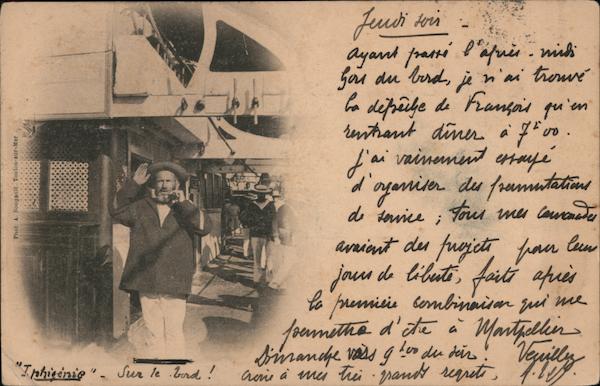 Jeudi soir
Ayant passé l'après-midi
hors du bord, je n'ai trouvé
la dépêche de François qu'en
rentrant dîner à 7h00.
J'ai vainement essayé
d'organiser des permutations
de service ; tous mes camarades
avaient des projets pour leur
jours de liberté, faits après
la première combinaison qui me
permettra d'être à Montpellier
Dimanche vers 9h00 du soir. Veuillez
croire à mes très grands regrets,
"Iphigénie" - Sur le bord !
Phot. A. Bougault, Toulon-sur-Mer